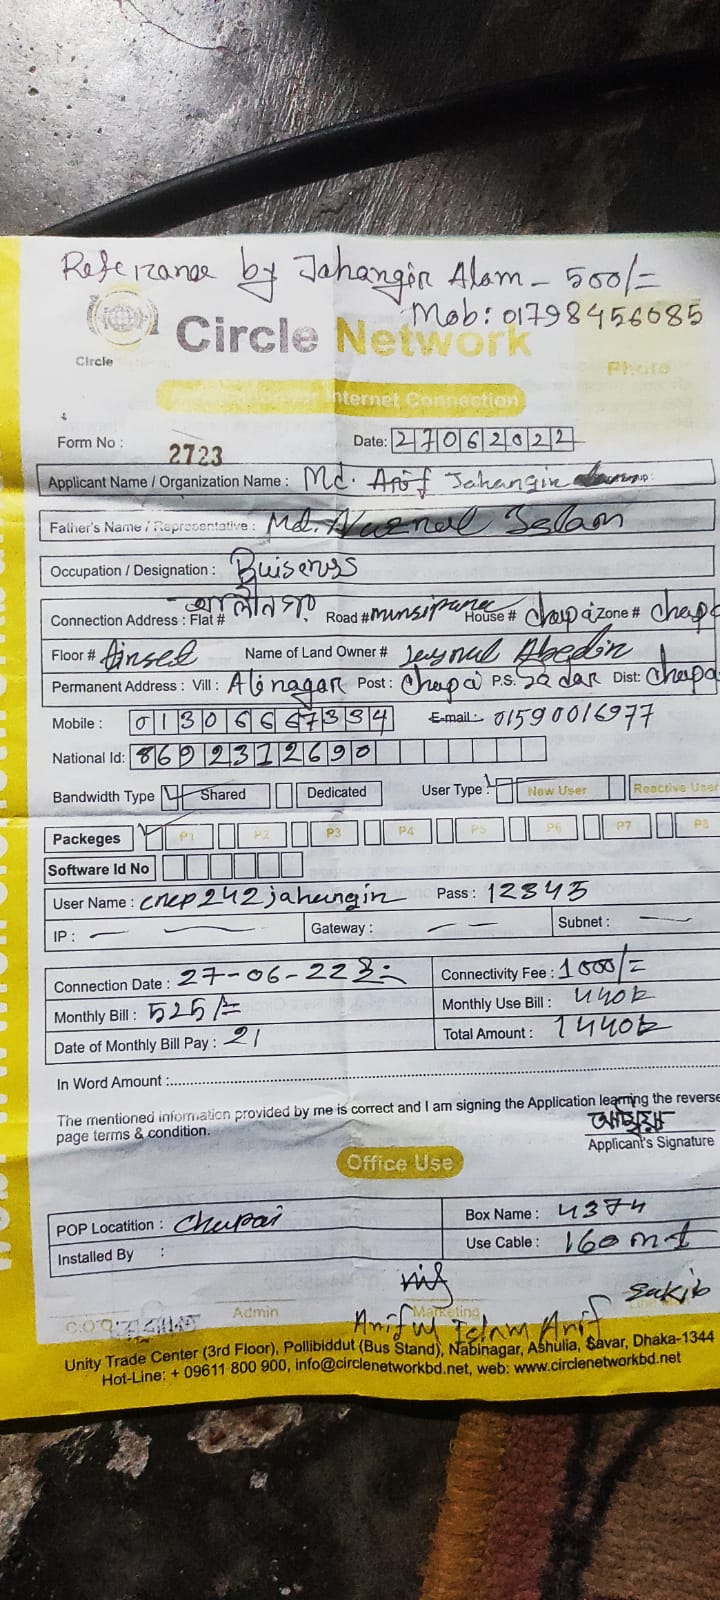 Referance by Jahangir Alom - 500/=
Mob: 01798456085
Circle Network
Circle
Photo
Internet Connection
Form No : 2723 Date: 27062022
Applicant Name / Organization Name : Md. Arif Jahangir
Father's Name / Representative : Md. Islam
Occupation / Designation : Buisenss
Connection Address : Flat # Road # munsipara House # Chapai Zone # Chapa
Floor # tinset Name of Land Owner # Abedin
Permanent Address : Vill : Alinagar Post : Chapai P.S. Sadar Dist: Chapa
Mobile : 01306667334 E-mail : 01590016977
National Id: 8692312690
Bandwidth Type Shared Dedicated User Type : New User Reactive User
Packeges P1 P2 P3 P4 P5 P6 P7 P8
Software Id No
User Name : cnep242jahangir Pass : 12345
IP : Gateway : Subnet :
Connection Date : 27-06-22 Connectivity Fee : 1000/=
Monthly Bill : 525/= Monthly Use Bill : 440
Date of Monthly Bill Pay : 21 Total Amount : 1440
In Word Amount :
The mentioned information provided by me is correct and I am signing the Application learning the reverse
page terms & condition.
Applicant's Signature
Office Use
POP Locatition : Chapai Box Name : 4374
Installed By : Use Cable : 160 mt
Sakib
Admin Marketing
Ariful Islam Arif
Unity Trade Center (3rd Floor), Pollibiddut (Bus Stand), Nabinagar, Ashulia, Savar, Dhaka-1344
Hot-Line: + 09611 800 900, info@circlenetworkbd.net, web: www.circlenetworkbd.net